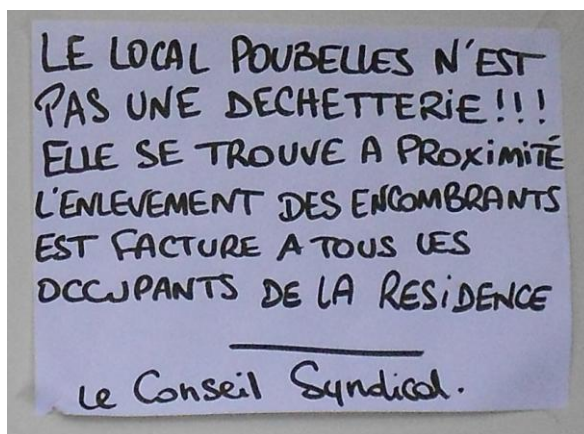 LE LOCAL POUBELLES N'EST
PAS UNE DECHETTERIE!!!
ELLE SE TROUVE A PROXIMITÉ
L'ENLEVEMENT DES ENCOMBRANTS
EST FACTURE A TOUS LES
OCCUPANTS DE LA RESIDENCE
Le Conseil Syndical.